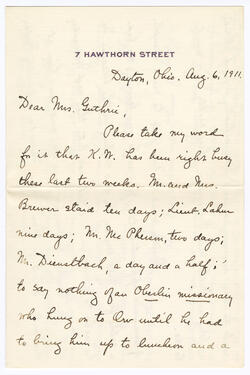 7 HAWTHORN STREET
Dayton, Ohio. Aug. 6, 1911.
Dear Mrs. Guthrie,
Please take my word
for it that K.W. has been right busy
these last two weeks. Mr. and Mrs.
Brewer staid ten days; Lieut. Lahm
nine days; Mr. Mc Pherson, two days;
Mr. Dienstbach, a day and a half;
to say nothing of an Oberlin missionary
who hung on to Orv until he had
to bring him up to luncheon and a